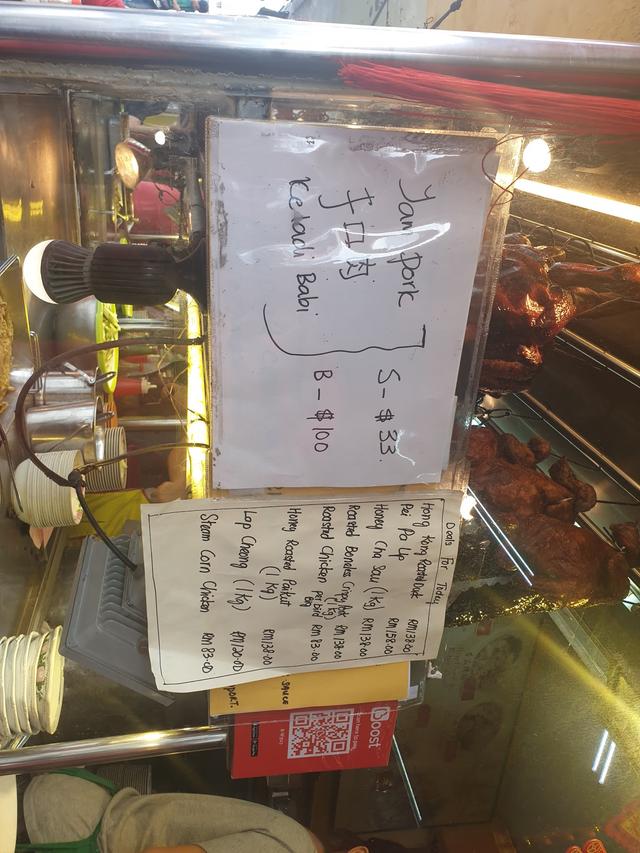 Yam pork
芋口肉
Keladi Babi
S - $33.
B - $100
Deals For Today
Hong Kong Roasted Duck RM138.00
Pei Pa Up RM158.00
Honey Cha Sew (1kg) RM138.00
Roasted Boneless Crispy Pork (1kg) RM138.00
Roasted Chicken per bird RM 73.00
Honey Roasted Porkcut (1 Kg) RM138.00
Lap Cheong (1kg) RM120.00
Steam Corn Chicken RM 83.00
SAUCE
PORT.
Boost
Scan here to pay